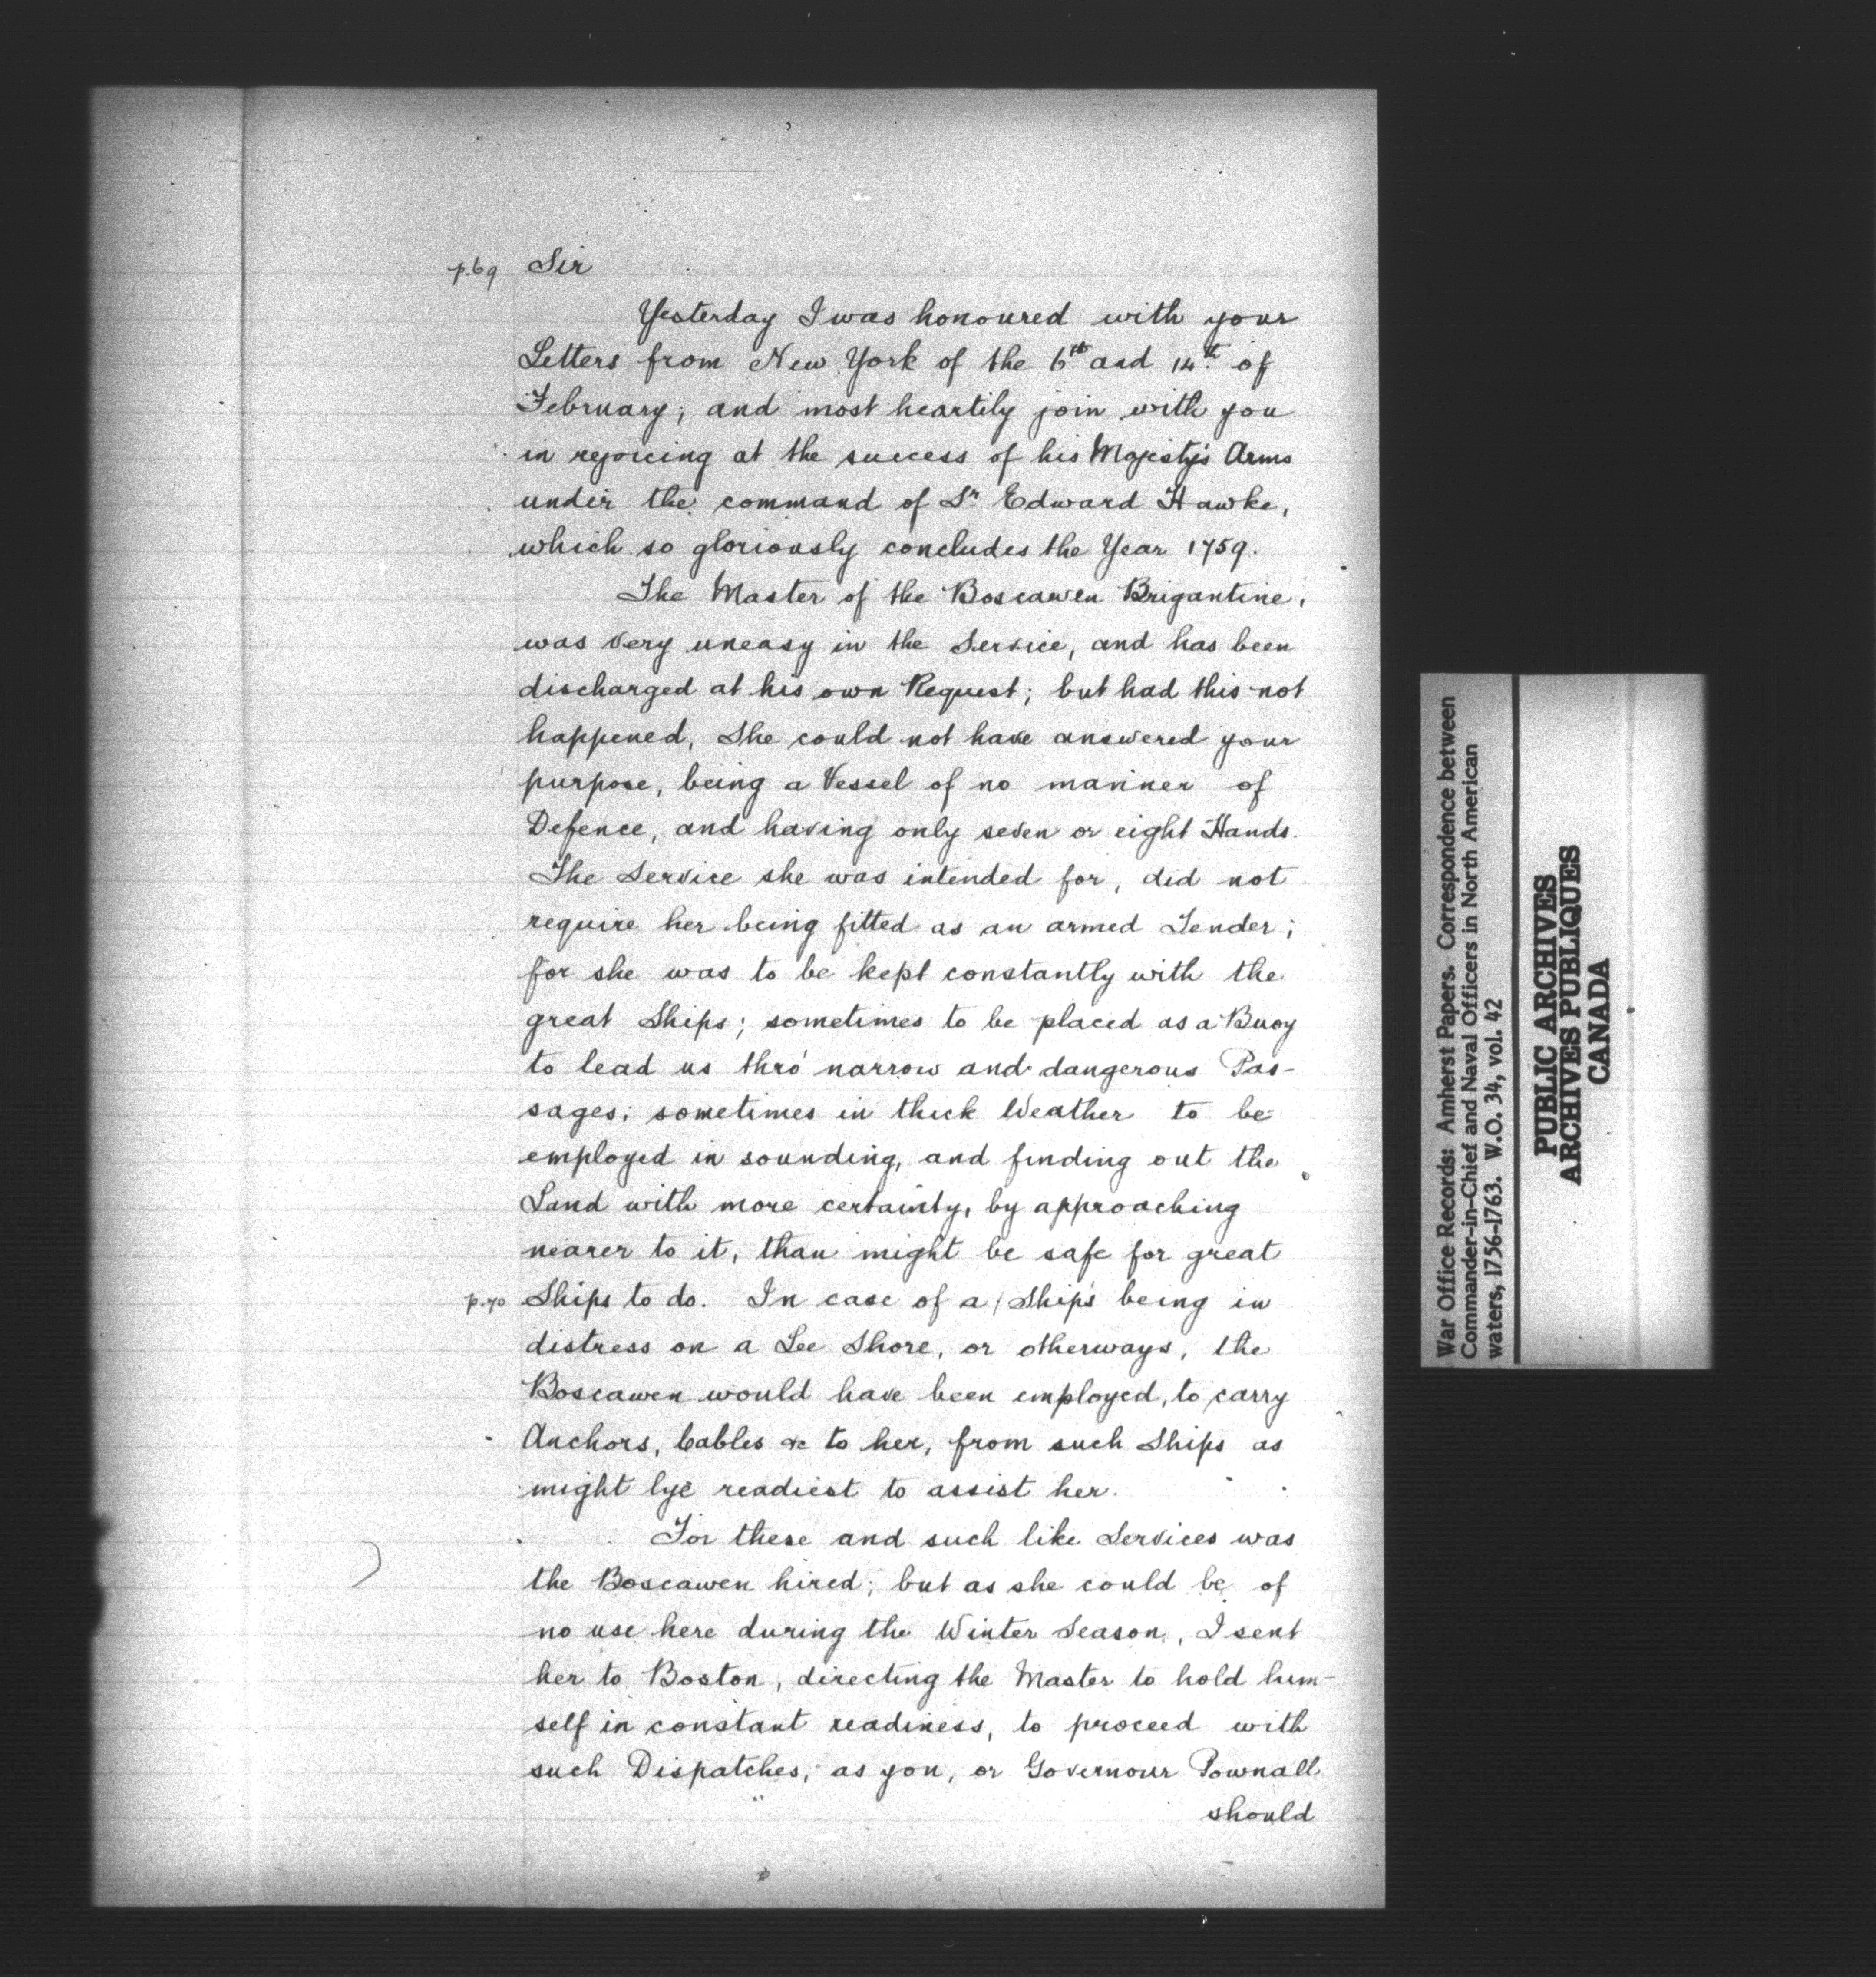 p.69 Sir
Yesterday I was honoured with your
Letters from New York of the 6th and 14th of
February; and most heartily join with you
in rejoicing at the success of his Majesty's Arms
under the command of Sr Edward Hawke,
which so gloriously concludes the Year 1759.
The Master of the Boscawen Brigantine,
was very uneasy in the Service, and has been
discharged at his own Request; but had this not
happened, She could not have answered your
purpose, being a Vessel of no manner of
Defence, and having only seven or eight Hands.
The Service she was intended for, did not
require her being fitted as an armed Tender;
for she was to be kept constantly with the
great Ships; sometimes to be placed as a Buoy
to lead us thro' narrow and dangerous Pas-
sages; sometimes in thick Weather to be
employed in sounding, and finding out the
Land with more certainty, by approaching
nearer to it, than might be safe for great
p.70 Ships to do. In case of a / Ship's being in
distress on a Lee Shore, or otherways, the
Boscawen would have been employed, to carry
Anchors, Cables &c to her, from such Ships as
might lye readiest to assist her.
For these and such like Services was
the Boscawen hired; but as she could be of
no use here during the Winter Season, I sent
her to Boston, directing the Master to hold him-
self in constant readiness, to proceed with
such Dispatches, as you, or Governour Pownall
should
War Office Records: Amherst Papers. Correspondence between
Commander-in-Chief and Naval Officers in North American
waters, 1756-1763. W.O. 34, vol. 42
PUBLIC ARCHIVES
ARCHIVES PUBLIQUES
CANADA